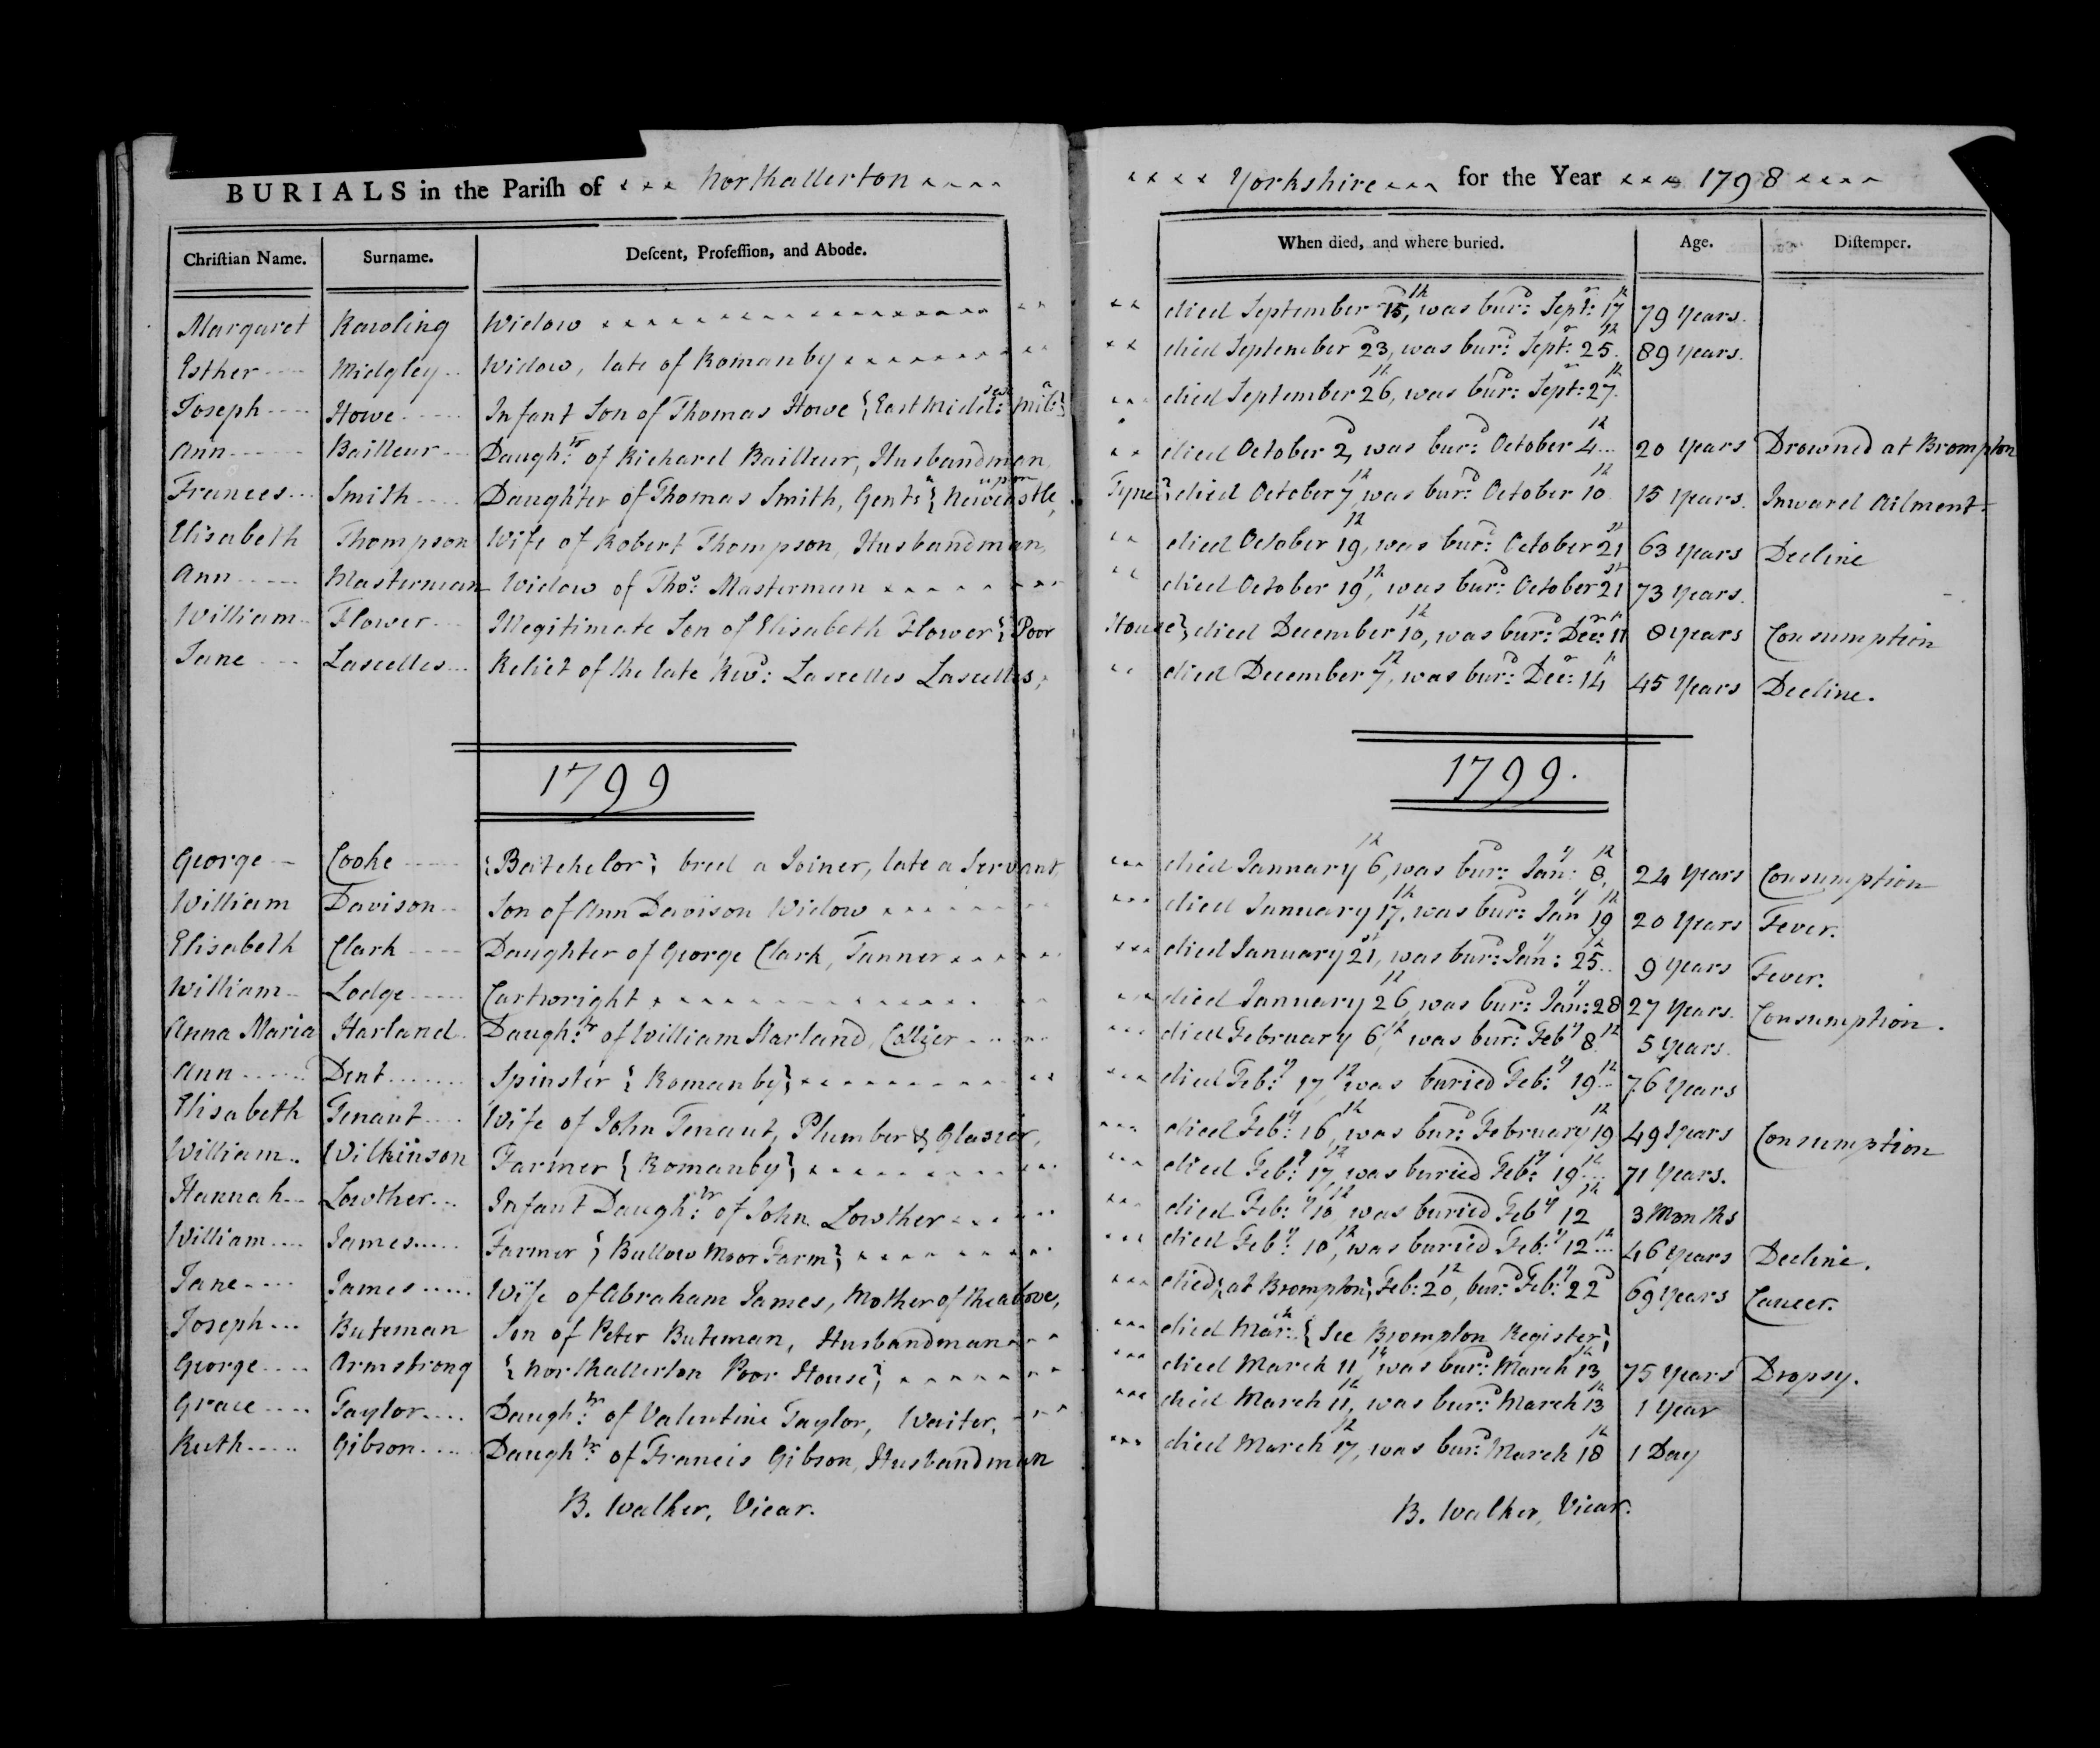 BURIALS in the Pariſh of Northallerton Yorkshire for the Year 1798
Chriſtian Name. Surname. Deſcent, Profeſſion, and Abode. When died, and where buried. Age. Diſtemper.
Margaret Rawling Widow died September 15th, was burd: Septr: 17th 79 Years.
Esther Midgley Widow, late of Romanby died September 23d, was burd: Septr: 25th 89 Years.
Joseph Howe Infant Son of Thomas Howe {East Middx: Mila} died September 26th, was burd: Septr: 27th
Ann Bailleur Daughtr: of Richard Bailleur, Husbandman died October 2d, was burd: October 4th 20 Years Drowned at Brompton
Frances Smith Daughter of Thomas Smith, Gentn {Newcastle, upon Tyne} died October 7th, was burd: October 10th 15 Years. Inward Ailment
Elisabeth Thompson Wife of Robert Thompson, Husbandman, died October 19th, was burd: October 21st 63 Years Decline
Ann Masterman Widow of Thos: Masterman died October 19th, was burd: October 21st 73 Years.
William Flower Illegitimate Son of Elisabeth Flower {Poor House} died December 10th, was burd: Decr: 11th 8 Years Consumption
Jane Lascelles Relict of the late Revd: Lascelles Lascelles, died December 7th, was burd: Decr: 14th 45 Years Decline.
1799 1799.
George Cooke {Batchelor} bred a Joiner, late a Servant, died January 6th, was burd: Jany: 8th, 24 Years Consumption
William Davison Son of Ann Davison Widow died January 17th, was burd: Jany 19th 20 Years Fever.
Elisabeth Clark Daughter of George Clark, Tanner died January 21st, was burd: Jany: 25th 9 Years Fever.
William Lodge Cartwright died January 26th, was burd: Jany: 28 27 Years. Consumption.
Anna Maria Harland Daughtr: of William Harland, Collier died February 6th, was burd: Feby 8th 5 Years.
Ann Dent Spinster {Romanby} died Feby: 17th was buried Feby: 19th 76 Years
Elisabeth Tenant Wife of John Tenant, Plumber & Glasier, died Feby: 16th, was burd: February 19th 49 Years Consumption
William Wilkinson Farmer {Romanby} died Feby: 17th, was buried Feby: 19th 71 Years.
Hannah Lowther Infant Daughtr: of John Lowther died Feby: 10th, was buried Feby 12th 3 Months
William James Farmer {Bullow Moor Farm} died Feby: 10th, was buried Feby: 12th 46 Years Decline.
Jane James Wife of Abraham James, Mother of the above, died {at Brompton} Feb: 20th, burd: Feby: 22d 69 Years Cancer.
Joseph Buteman Son of Peter Buteman, Husbandman died Marh: {See Brompton Register}
George Armstrong {Northallerton Poor House} died March 11th, was burd: March 13th 75 Years Dropsy.
Grace Taylor Daughtr: of Valentine Taylor, Waiter, died March 11th, was burd: March 13th 1 Year
Ruth Gibson Daughtr: of Francis Gibson, Husbandman died March 17th, was burd: March 18th 1 Day
B. Walker, Vicar. B. Walker, Vicar.